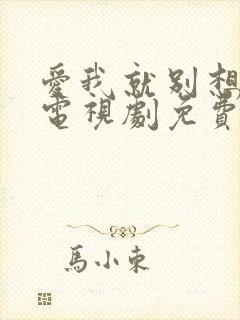 愛我就別想
電視劇免費
馬小東